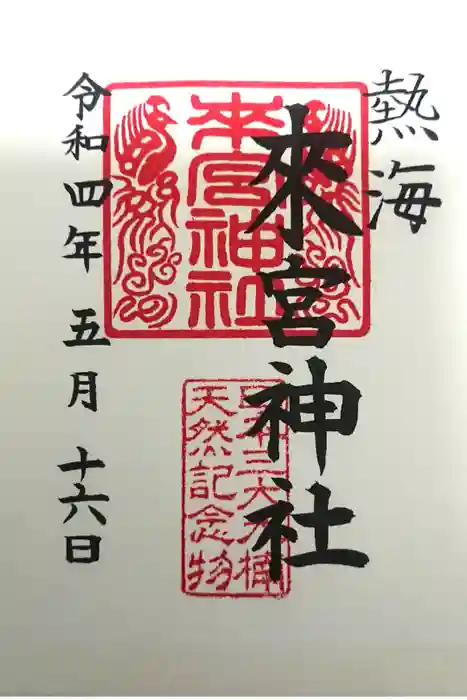 熱海
來宮神社
來宮神社
日本三大大楠
天然記念物
令和四年 五月 十六日